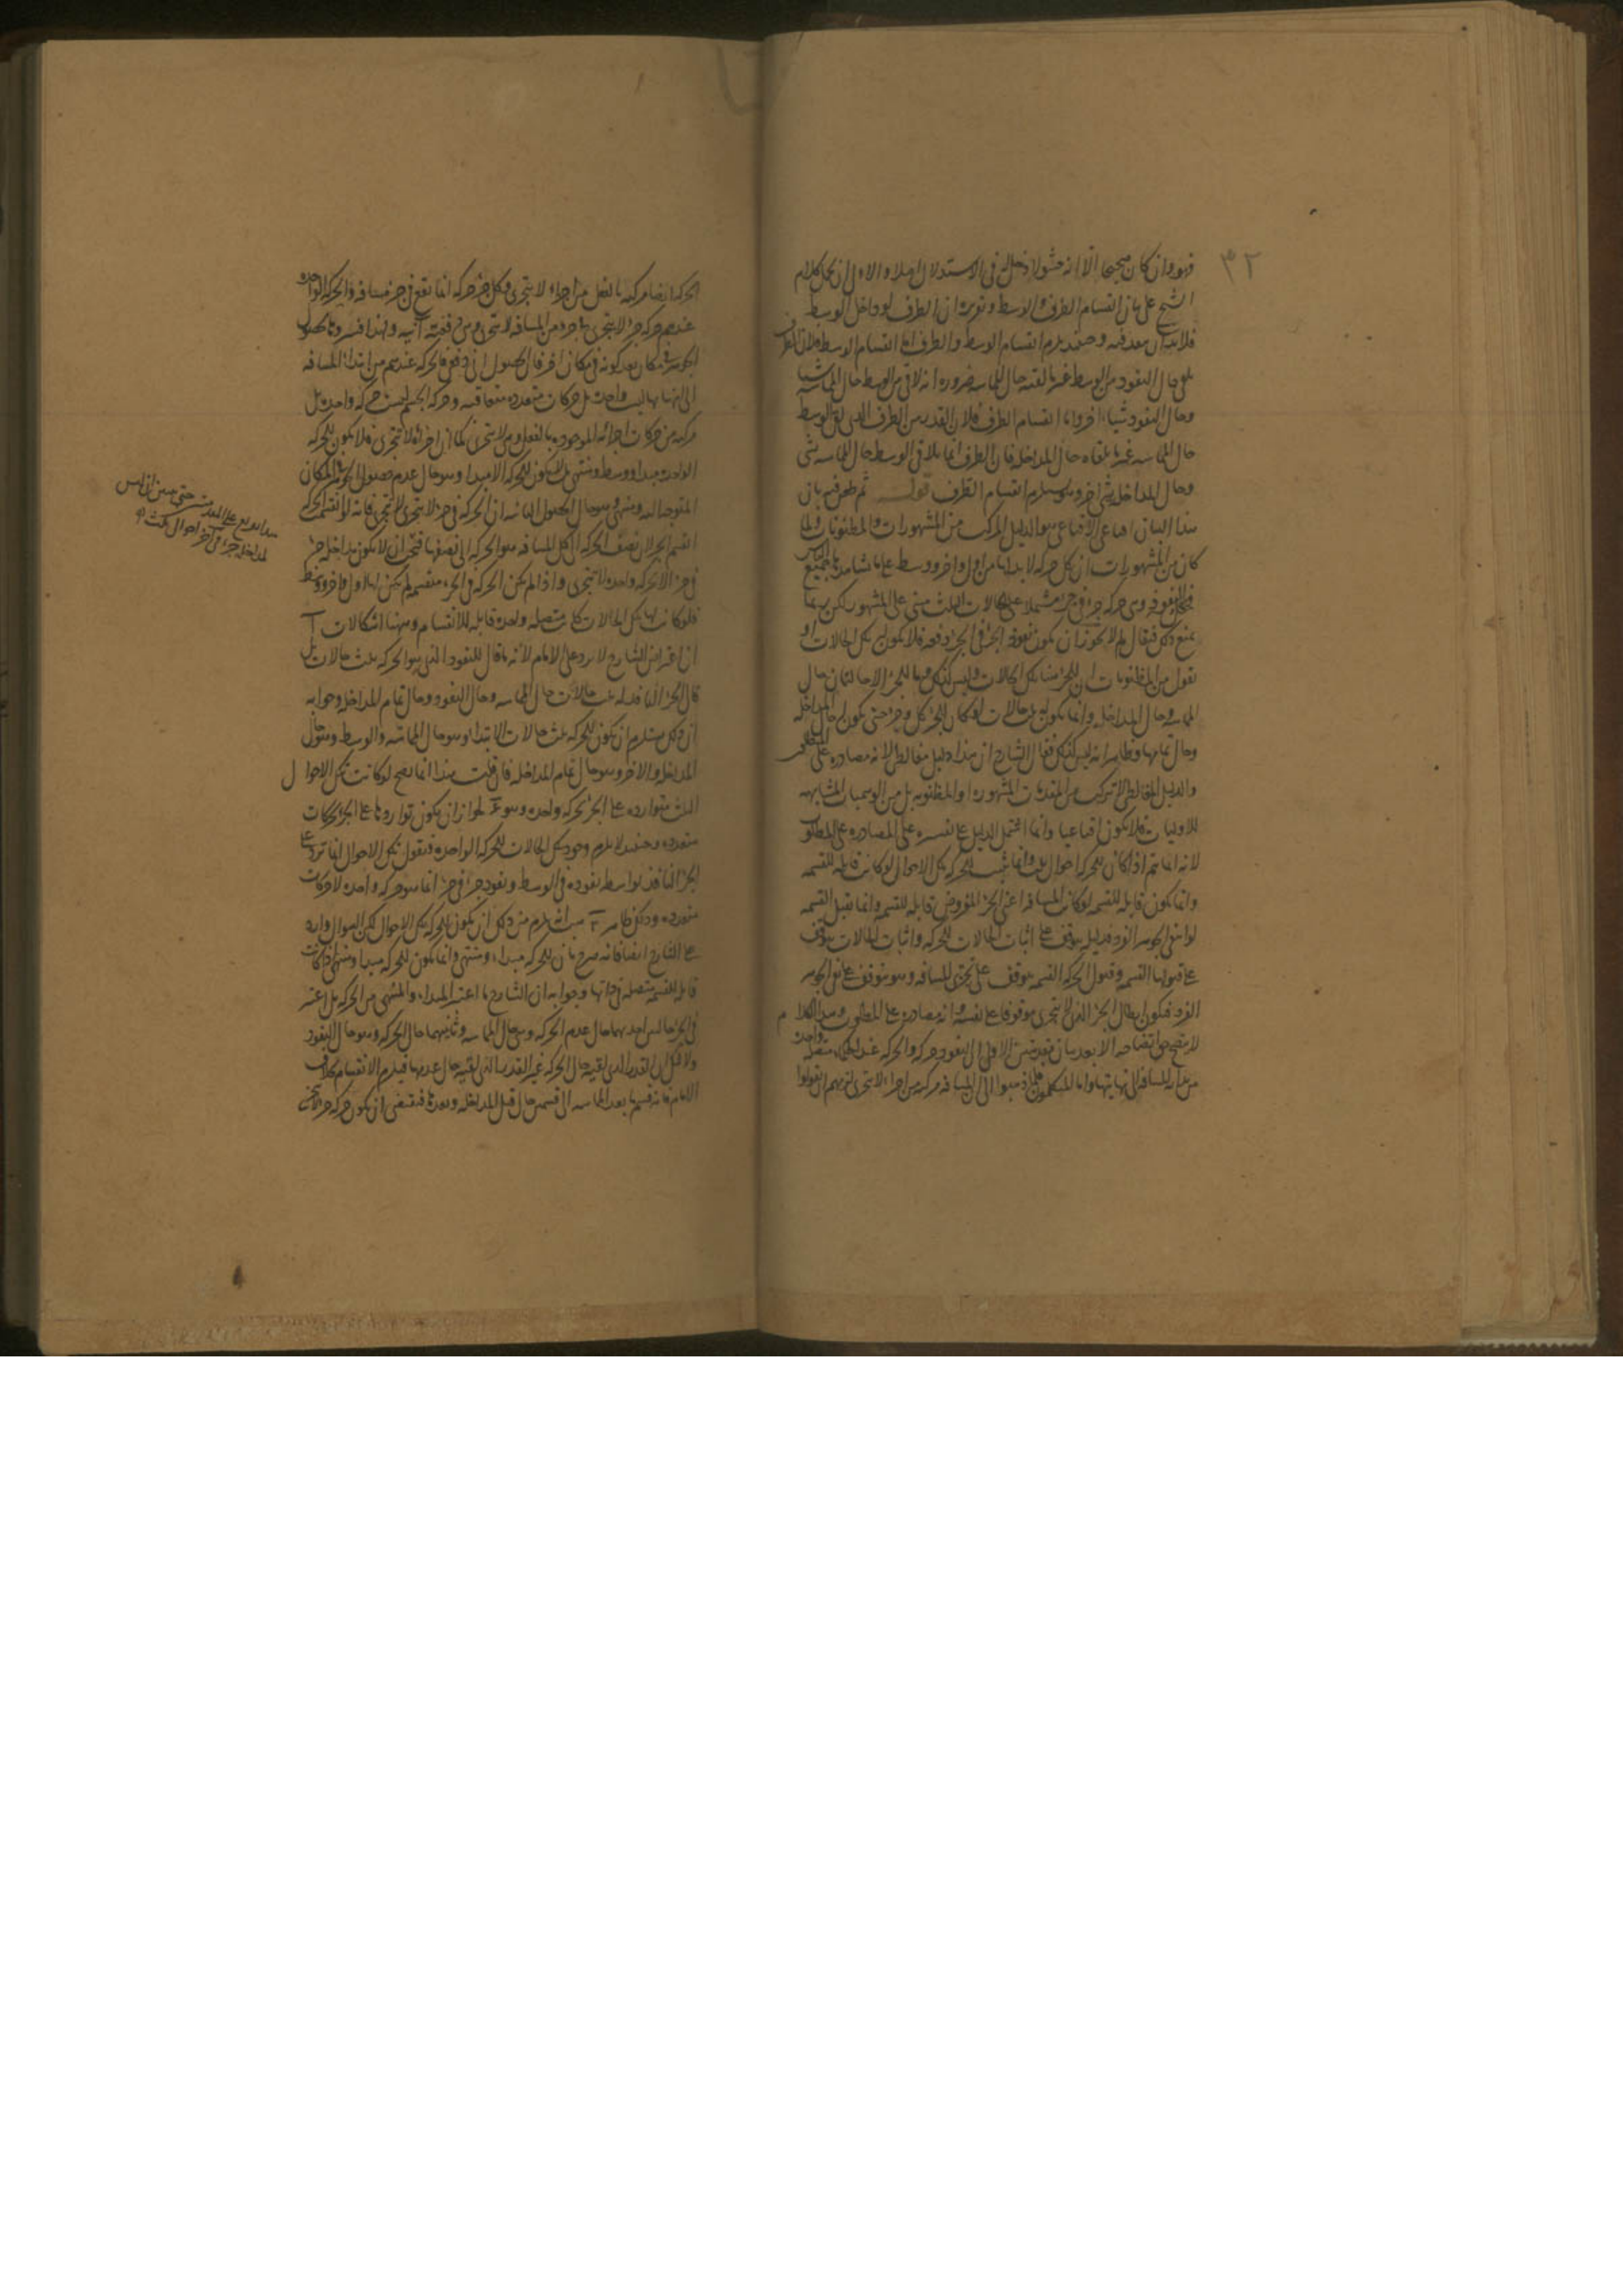 ٣٢
فهو وان كان صحيحا الا انه حشو لا دخل له في الاستدلال اصلا والاولى ان يحمل كلام
الشيخ على بيان انقسام الطرف والوسط وتقريره ان الطرف لو داخل الوسط
فلا بد ان ينفذ فيه وحينئذ يلزم انقسام الوسط والطرف اما انقسام الوسط فلان الطرف
يلقى حال النفوذ من الوسط غير ما لقيه حال المماسة ضرورة انه لاقى من الوسط حال المماسة شيئا
وحال النفوذ شيئا اخر واما انقسام الطرف فلان القدر من الطرف الذي لقي الوسط
حال المماسة غير ما يلقاه حال المداخلة فان الطرف انما يلاقي الوسط حال المماسة بشي
وحال المداخلة بشي اخر وهو يستلزم انقسام الطرف قوله ثم طعن فيه بان
هذا البيان اقناعي الاقناعي هو الدليل المركب من المشهورات والمظنونات ولما
كان من المشهورات ان كل حركة لا بد لها من اول واخر ووسط على ما شاهده جميع الناس
وهي حركة جزء في جزء مشتملا على الحالات الثلث مبني على المشهور لكن ربما
يمنع ذلك فيقال لم لا يجوز ان يكون نفوذ الجزء في الجزء دفعة فلا يكون له تلك الحالات او
نقول من المظنونات ان للجزء هنا تلك الحالات وليس كذلك وما للجزء الا حالتان حال
المماسة وحال المداخلة وانما يكون له ثلث حالات لو كان للجزء كل وجزء حتى يكون له حال المداخلة
وحال تمامها وظاهر انه ليس كذلك فقال الشارح ان هذا دليل مغالطي لانه مصادرة على المطلوب
والدليل المغالطي لا يتركب من المقدمات المشهورة او المظنونة بل من الوهميات المشابهة
للاوليات فلا يكون اقناعيا وانما اشتمل الدليل على تفسيره على المصادرة على المطلوب
لانه انما يتم اذا كان للحركة احوال ثلث وانما يثبت للحركة تلك الاحوال لو كانت قابلة للقسمة
وانما يكون قابلة للقسمة لو كانت المسافة اعني الجزء المفروض قابلة للقسمة وانما تقبل القسمة
لو انتفى الجوهر الفرد فدليله يتوقف على اثبات الحالات للحركة واثبات الحالات يتوقف
على قبولها القسمة وقبول الحركة القسمة يتوقف على تجزي المسافة وهو يتوقف على نفي الجوهر
الفرد فيكون ابطال الجزء الذي لا يتجزى موقوفا على نفسه وانه مصادرة على المطلوب وهذا الكلام
لا يتضح حق اتضاحه الا بعد بيان مقدمتين الاولى ان النفوذ حركة والحركة عند الحكماء متصلة واحدة
من بداية المسافة الى نهايتها واما المتكلمون فلما ذهبوا الى ان المسافة مركبة من اجزاء لا تتجزى لزمهم ان يقولوا
الحركة ايضا مركبة بالفعل من اجزاء لا يتجزى وكل جزء حركة انما تقع في جزء مسافة والحركة الواحدة
عندهم حركة جزء لا يتجزى في جزء من المسافة لا يتجزى وهي دفعية آنية ولهذا فسروها بحصول
الجوهر في مكان بعد كونه في مكان اخر فان الحصول اني دفعي فالحركة عندهم من ابتداء المسافة
الى انتهائها ليست واحدة بل حركات متعددة متعاقبة وحركة الجسم ليست حركة واحدة بل
مركبة من حركات اجزائه الموجودة بالفعل وهي لا يتجزى كما ان اجزائه لا تتجزى فلا يكون للحركة
الواحدة مبدا ووسط ومنتهى بل لا يكون للحركة الا مبدا وهو حال عدم حصول الجوهر في المكان
المتوجه اليه ومنتهى وهو حال الحصول الثانية ان الحركة في جزء لا يتجزى لا يتجزى فانه لو انقسمت الحركة
انقسم الجزء لان نصف الحركة الى كل المسافة هو الحركة الى نصفها فيجب ان لا يكون مداخلة جزء
في جزء الا بحركة واحدة لا تتجزى واذا لم يكن الحركة في الجزء منقسمة لم يكن لها اول واخر ووسط
فلو كانت لها تلك الحالات كانت متصلة واحدة قابلة للانقسام وههنا اشكالات آ
ان اعتراض الشارح لا يرد على الامام لانه ما قال للنفوذ الذي هو الحركة ثلث حالات بل
قال الجزء النافذ له ثلث حالات حال المماسة وحال النفوذ وحال تمام المداخلة وجوابه
ان ذلك يستلزم ان يكون للحركة ثلث حالات الابتداء وهو حال المماسة والوسط وهو حال
المداخلة والاخر وهو حال تمام المداخلة فان قلت هذا انما يصح لو كانت تلك الاحوال
الثلث متواردة على الجزء بحركة واحدة وهو مم لجواز ان يكون تواردها على الجزء بحركات
متعددة وحينئذ لا يلزم وجود تلك الحالات للحركة الواحدة فنقول تلك الاحوال انما ترد على
الجزء النافذ بواسطة نفوذه في الوسط ونفوذ جزء في جزء انما هو حركة واحدة لا حركات
متعددة وذلك ظاهر ب هب انه يلزم من ذلك ان يكون للحركة تلك الاحوال لكن السوال وارد
على الشارح ايضا فانه صرح بان للحركة مبداء ومنتهى وانما يكون للحركة مبدا ومنتهى اذا كانت
قابلة للقسمة متصلة في ذاتها وجوابه ان الشارح ما اعتبر المبداء والمنتهى من الحركة بل اعتبر
في الجزء حالتين احديهما حال عدم الحركة وهي حال المماسة وثانيتهما حال الحركة وهو حال النفوذ
ولا شك ان القدر الذي لقيه حال الحركة غير القدر الذي لقيه حال عدمها فيلزم الانقسام بخلاف
الامام فانه قسم ما بعد المماسة الى قسمين حال قبل المداخلة وبعدها فيقتضي ان يكون حركة جزء لا يتجزى